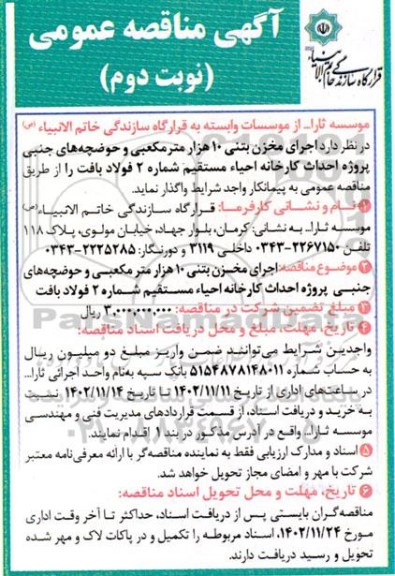 آگهی مناقصه عمومی
(نوبت دوم)
قرارگاه سازندگی خاتم الانبیاء
موسسه ثارا... از موسسات وابسته به قرارگاه سازندگی خاتم الانبیاء (ص)
در نظر دارد اجرای مخزن بتنی ۱۰ هزار متر مکعبی و حوضچه‌های جنبی
پروژه احداث کارخانه احیاء مستقیم شماره ۲ فولاد بافت را از طریق
مناقصه عمومی به پیمانکار واجد شرایط واگذار نماید.
۱ نام و نشانی کارفرما: قرارگاه سازندگی خاتم الانبیاء (ص)
موسسه ثارا... به نشانی: کرمان، بلوار جهاد، خیابان مولوی، پلاک ۱۱۸
تلفن ۲۲۶۷۱۵۰-۰۳۴۳ داخلی ۳۱۱۹ و دورنگار: ۲۲۲۵۲۸۵-۰۳۴۳
۲ موضوع مناقصه: اجرای مخزن بتنی ۱۰ هزار متر مکعبی و حوضچه‌های
جنبی پروژه احداث کارخانه احیاء مستقیم شماره ۲ فولاد بافت
۳ مبلغ تضمین شرکت در مناقصه: ۳۰,۰۰۰,۰۰۰,۰۰۰ ریال
۴ تاریخ، مهلت، مبلغ و محل دریافت اسناد مناقصه:
واجدین شرایط می‌توانند ضمن واریز مبلغ دو میلیون ریال
به حساب شماره ۵۱۵۴۸۷۸۱۴۸۰۱۱ بانک سپه به‌نام واحد اجرائی ثارا...
در ساعت‌های اداری از تاریخ ۱۴۰۲/۱۱/۱۱ تا تاریخ ۱۴۰۲/۱۱/۱۴ نسبت
به خرید و دریافت اسناد، از قسمت قراردادهای مدیریت فنی و مهندسی
موسسه ثارا... واقع در آدرس مذکور در بند ۱ اقدام نمایند.
۵ اسناد و مدارک ارزیابی فقط به نماینده مناقصه‌گر با ارائه معرفی‌نامه معتبر
شرکت با مهر و امضای مجاز تحویل خواهد شد.
۶ تاریخ، مهلت و محل تحویل اسناد مناقصه:
مناقصه‌گران بایستی پس از دریافت اسناد، حداکثر تا آخر وقت اداری
مورخ ۱۴۰۲/۱۱/۲۴، اسناد مربوطه را تکمیل و در پاکات لاک و مهر شده
تحویل و رسید دریافت دارند.